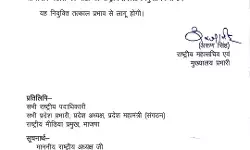 यह नियुक्ति तत्काल प्रभाव से लागू होगी।
(अरुण सिंह)
राष्ट्रीय महासचिव एवं
मुख्यालय प्रभारी
प्रतिलिपि–
सभी राष्ट्रीय पदाधिकारी
सभी प्रदेश प्रभारी, प्रदेश अध्यक्ष, प्रदेश महामंत्री (संगठन)
राष्ट्रीय मीडिया प्रमुख, भाजपा
सूचनार्थ–
माननीय राष्ट्रीय अध्यक्ष जी